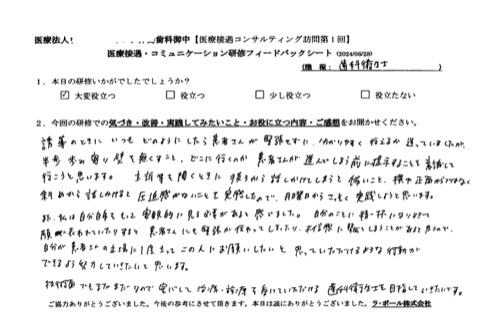 医療法人 歯科御中【医療接遇コンサルティング訪問第1回】
医療接遇・コミュニケーション研修フィードバックシート (2024/06/28)
(職種: 歯科衛生士 )
1.本日の研修いかがでしたでしょうか?
☑ 大変役立つ □ 役立つ □ 少し役立つ □ 役立たない
2.今回の研修での気づき・改善・実践してみたいこと・お役に立つ内容・ご感想をお聞かせください。
誘導のときに いつも どのようにしたら患者さんが 緊張せずに、分かりやすく 行えるか 迷っていましたが、
半歩 歩み寄り 壁を無くすこと、どこに行くのか 患者さんが 進んでしまう前に提示することを意識して
行こうと思います。主訴等を聞くときに 後ろから 話しかけてしまうと 怖いこと、横や正面からではなく
斜めから 話しかけると 圧迫感がないことを 実感したので、月曜日から 実践しようと思います。
又、私は自分自身をもっと 客観的に見る必要があると 感じました。自分のことに 精一杯になり
顔が 患者さんにも 緊張が しまったり、 にしてしまうことがあるので、
自分が 患者さんの立場に 立って この人にお願いしたいと 思っていただけるような行動が
できるよう努力していきたいと思います。
技術面でもまだまだなので 安心して 治療・診療を 受けていただける 歯科衛生士を目指していきたいです。
ご協力ありがとうございました。今後の参考にさせて頂きます。本日は誠にありがとうございました。 ラ・ポール株式会社